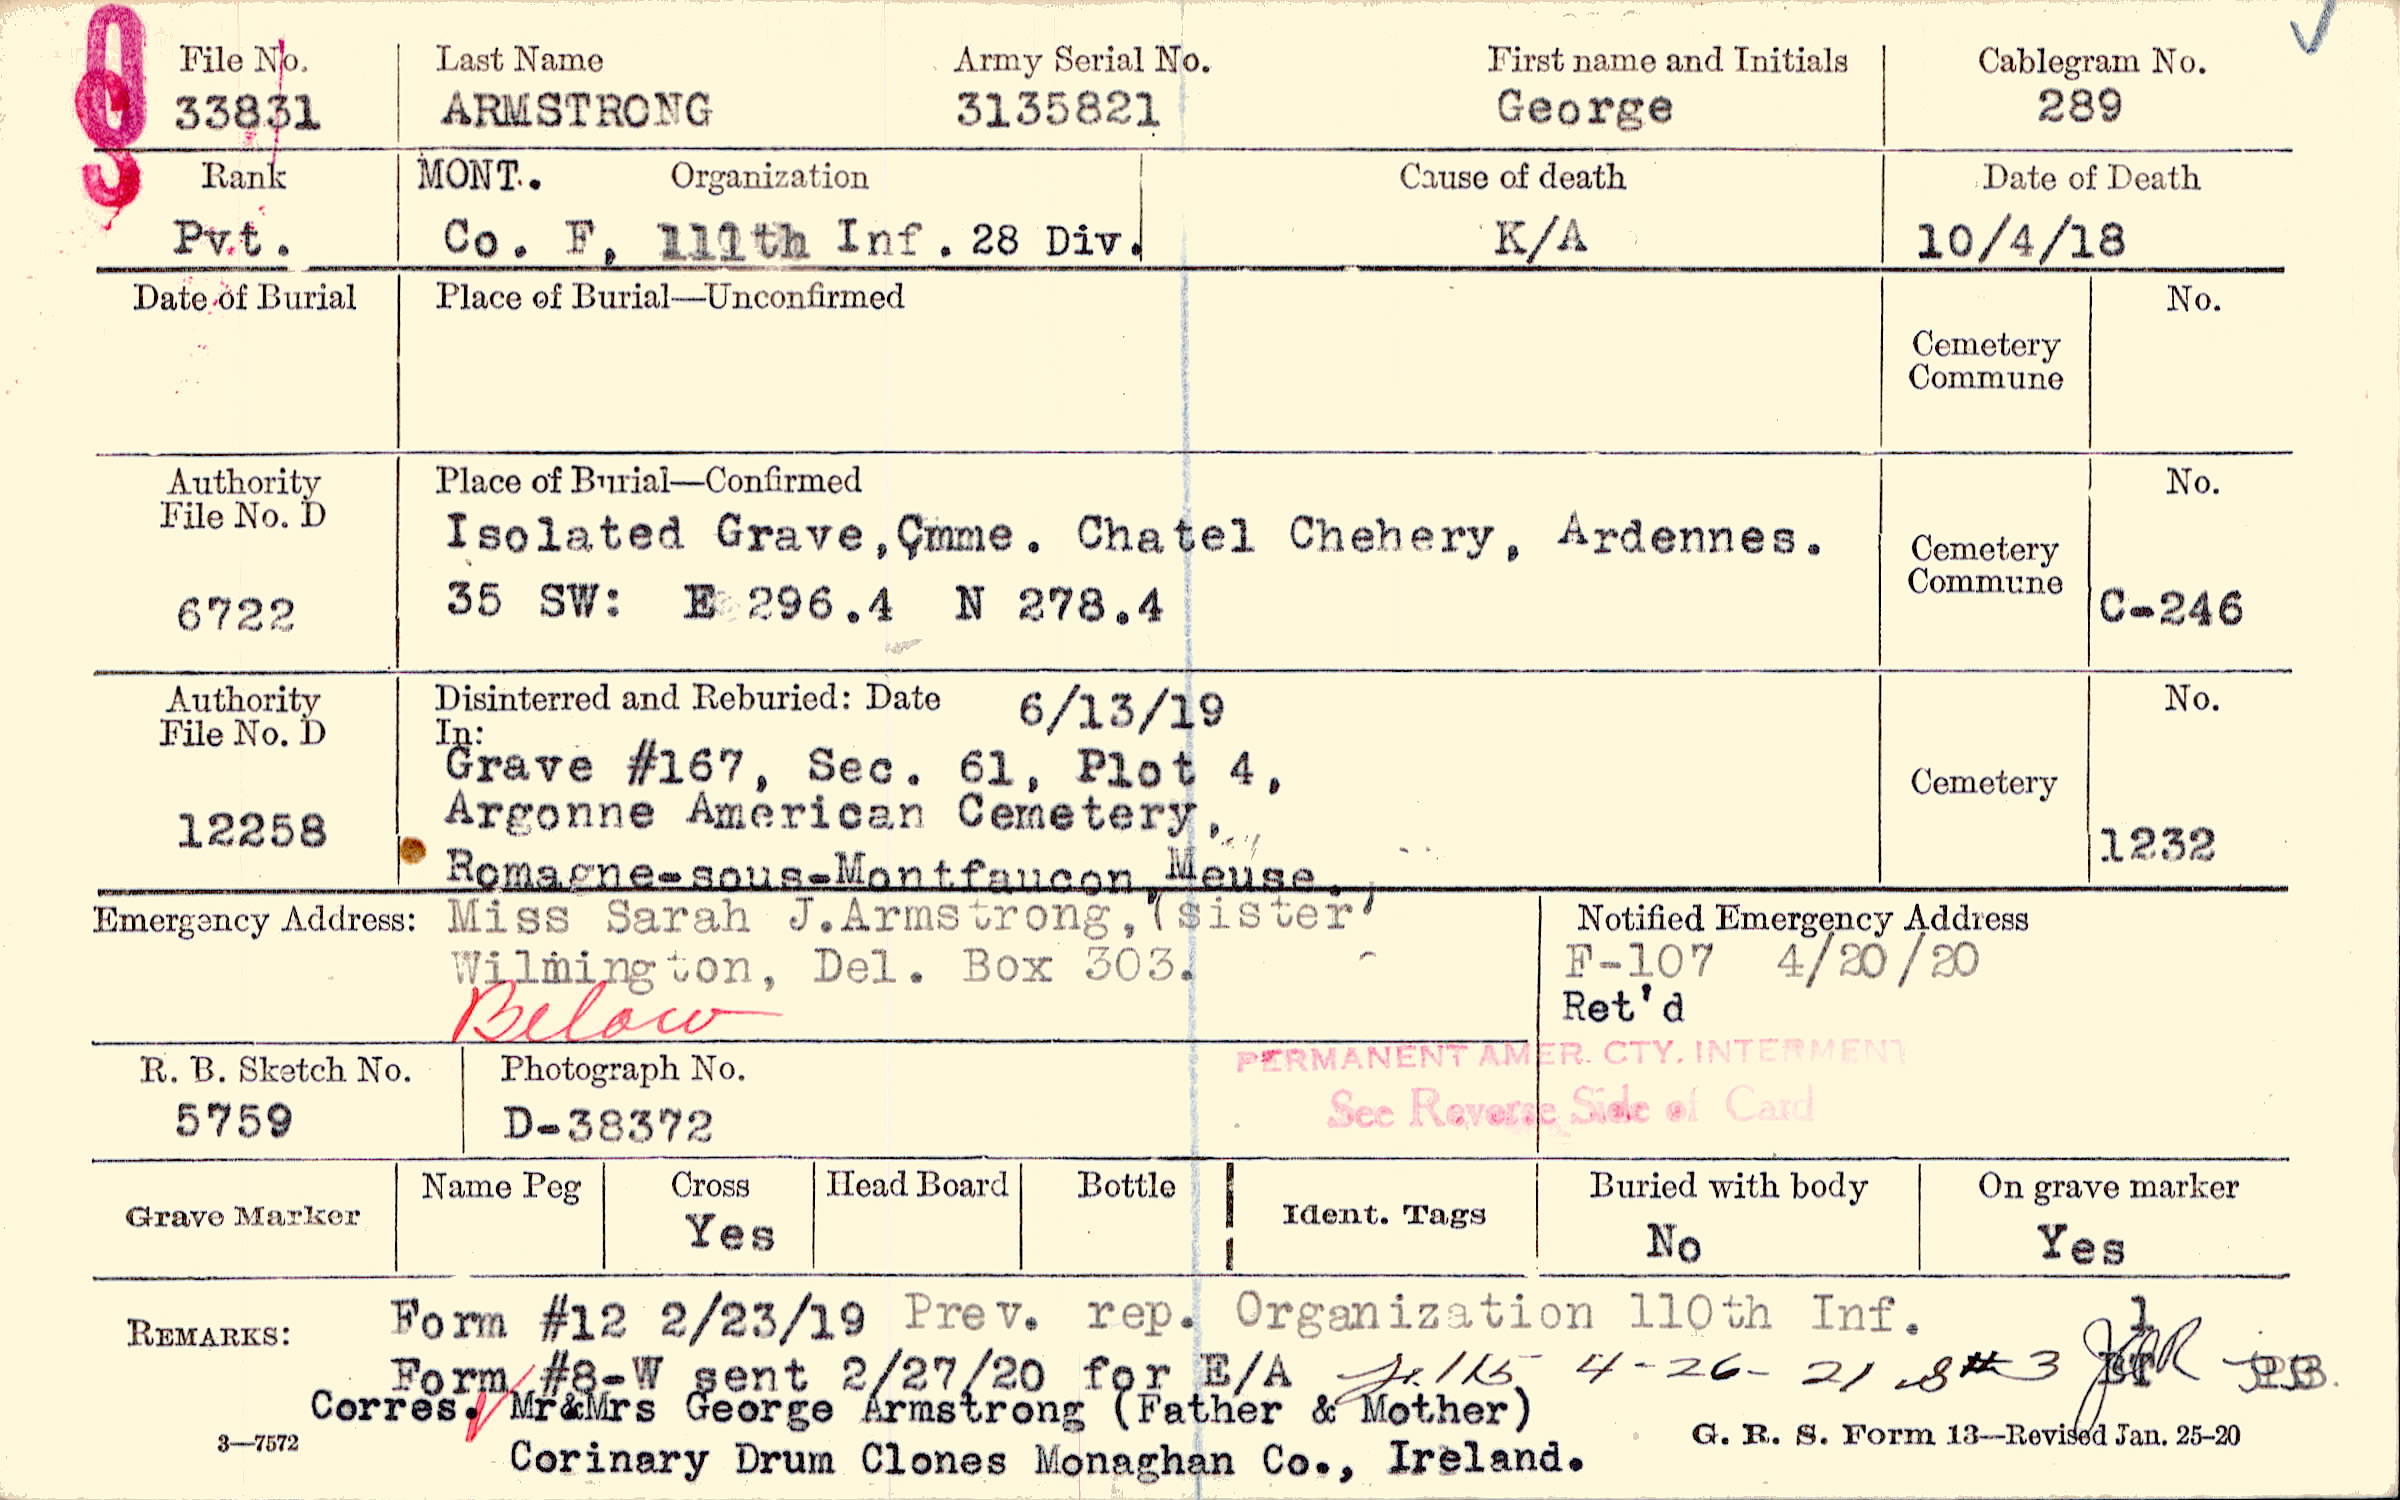 File No. Last Name Army Serial No. First name and Initials Cablegram No.
33831 ARMSTRONG 3135821 George 289
Rank MONT. Organization Cause of death Date of Death
Pvt. Co. F, 111th Inf. 28 Div. K/A 10/4/18
Date of Burial Place of Burial—Unconfirmed No.
Cemetery
Commune
Authority Place of Burial—Confirmed No.
File No. D
Isolated Grave, Cmme. Chatel Chehery, Ardennes.
Cemetery
Commune
6722 35 SW: E 296.4 N 278.4 C-246
Authority Disinterred and Reburied: Date 6/13/19 No.
File No. D In:
Grave #167, Sec. 61, Plot 4,
Cemetery
Argonne American Cemetery,
12258 1232
Romagne-sous-Montfaucon, Meuse.
Emergency Address: Miss Sarah J.Armstrong, (sister) Notified Emergency Address
Wilmington, Del. Box 303. F-107 4/20/20
Below Ret'd
PERMANENT AMER. CTY. INTERMENT
R. B. Sketch No. Photograph No.
See Reverse Side of Card
5759 D-38372
Grave Marker Name Peg Cross Head Board Bottle Ident. Tags Buried with body On grave marker
Yes No Yes
REMARKS: Form #12 2/23/19 Prev. rep. Organization 110th Inf. 1
Form #8-W sent 2/27/20 for E/A 4-26-21 #3
Corres. Mr&Mrs George Armstrong (Father & Mother)
3—7572 G. R. S. Form 13—Revised Jan. 25-20
Corinary Drum Clones Monaghan Co., Ireland.